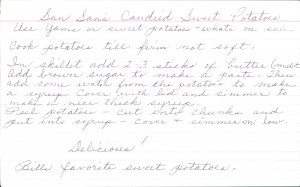 San Sans Candied Sweet Potatoes
Use Yams or sweet potatoes - whats on sale
Cook potatoes till firm not soft.
In skillet add 2-3 sticks of butter (melt
Add brown sugar to make a paste. Then
add some water from the potatoes to make
a syrup. Cover with lid and simmer to
make a nice thick syrup.
Peel potatoes - cut into chunks and
put into syrup - cover & simmer on low.
Delicious!
Bills favorite sweet potatoes.